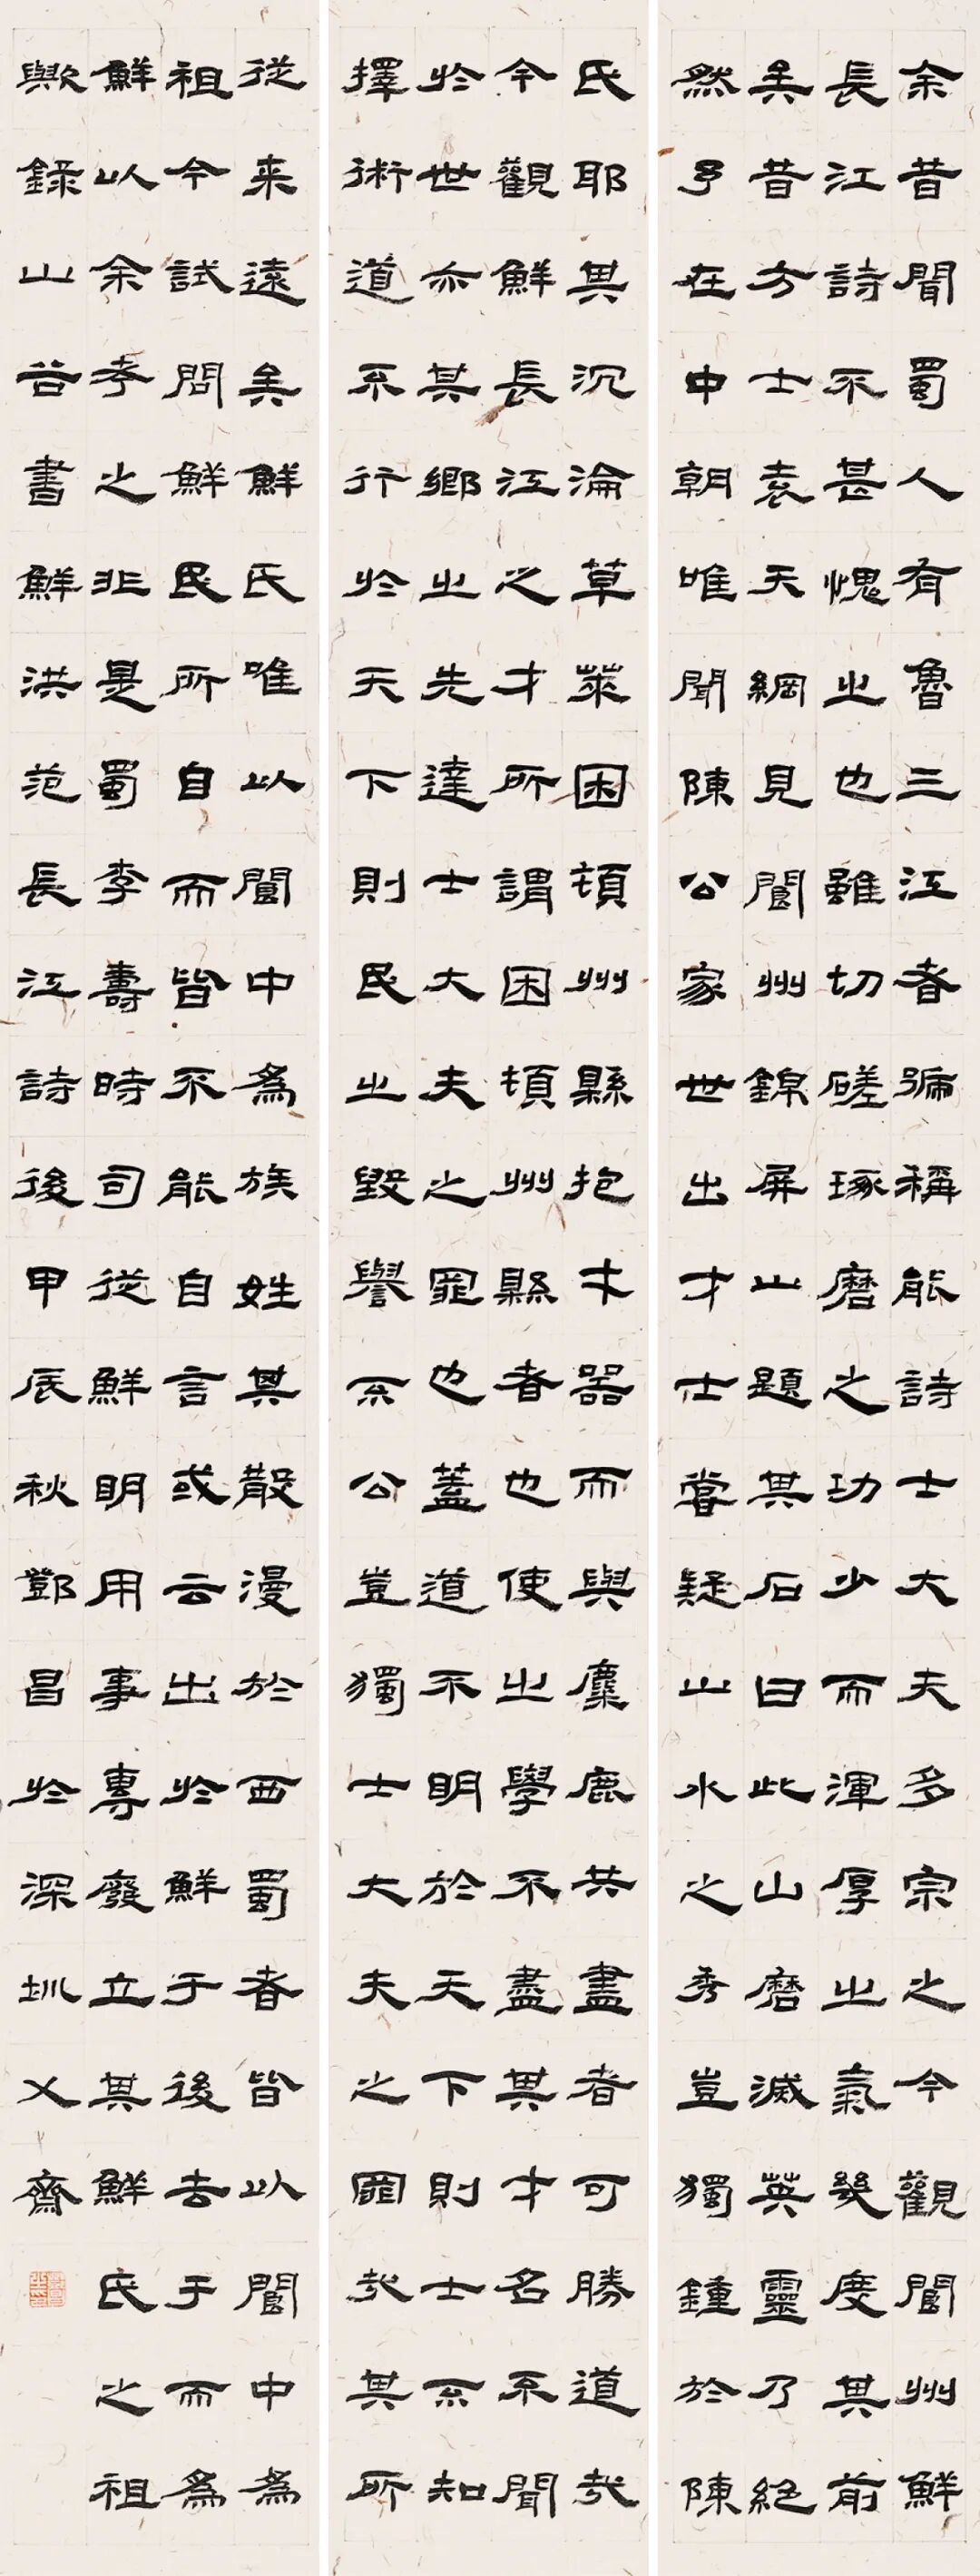 余昔聞蜀人有魯三江者號稱能詩士大夫多宗之今觀閬州鮮
長江詩不甚愧之也雖切磋琢磨之功少而渾厚之氣幾度其前
矣昔方士袁天綱見閬州錦屏山題其石曰此山磨滅英靈乃絕
然予在中朝唯聞陳公家世出才士嘗疑山水之秀豈獨鍾於陳
氏耶其沉淪草萊困頓州縣抱才器而與麋鹿共盡者可勝道哉
今觀鮮長江之才所謂困頓州縣者也使之學不盡其才名不聞
於世亦其鄉之先達士大夫之罪也蓋道不明於天下則士不知
擇術道不行於天下則民之毀譽不公豈獨士大夫之罪哉其所
從来遠矣鮮氏唯以閬中為族姓其散漫於西蜀者皆以閬中為
祖今試問鮮民所自而皆不能自言或云出於鮮于後去于而為
鮮以余考之非是蜀李壽時司從鮮明用事專廢立其鮮氏之祖
歟錄山谷書鮮洪范長江詩後甲辰秋鄧昌於深圳乂齋